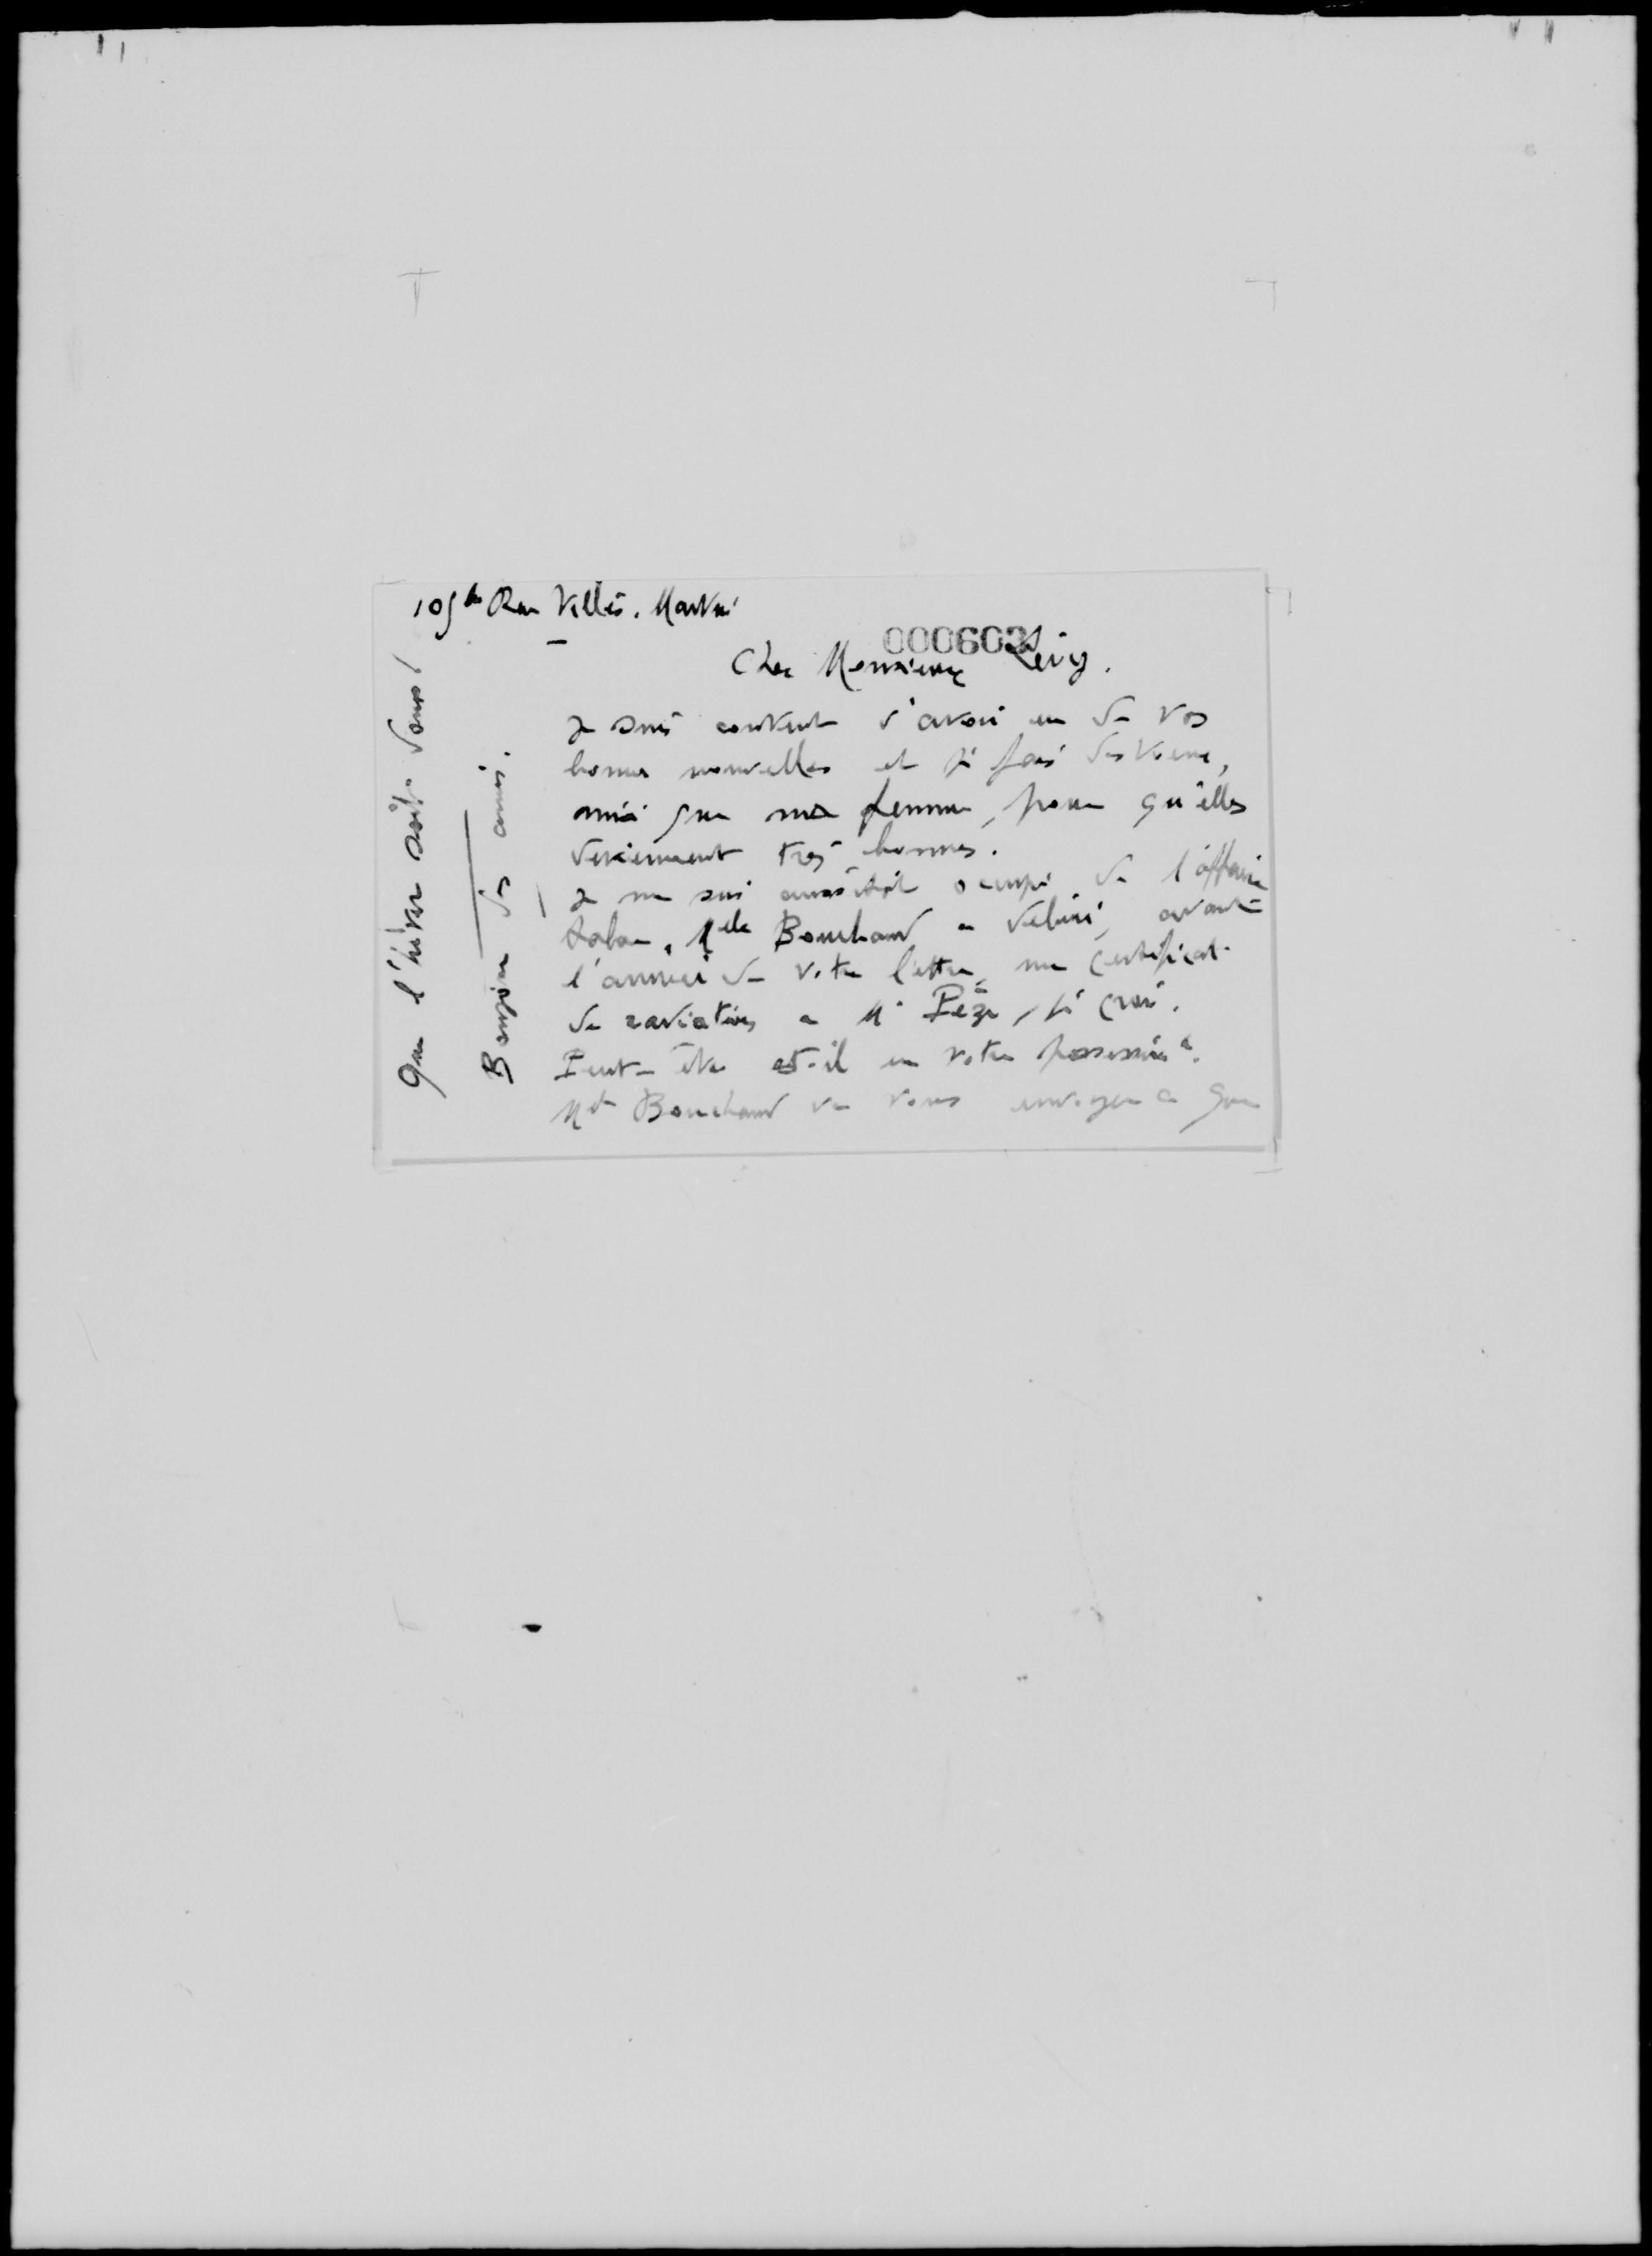 105 bis Rue Vallès. Martini
000603
Cher Monsieur Lévy.
Je suis content d'avoir eu de vos
bonnes nouvelles et je fais des vœux,
ainsi que ma femme, pour qu'elles
deviennent très bonnes.
Je me suis aussitôt occupé de l'affaire
tabac. Melle Bouchaud a délivré, avant
l'arrivée de votre lettre, un certificat
de radiation à Mr Pèze, je crois.
Peut-être est-il en votre possession.
Melle Bouchaud va vous envoyer ce que
Que l'hiver soit doux!
Bonjour des amis.